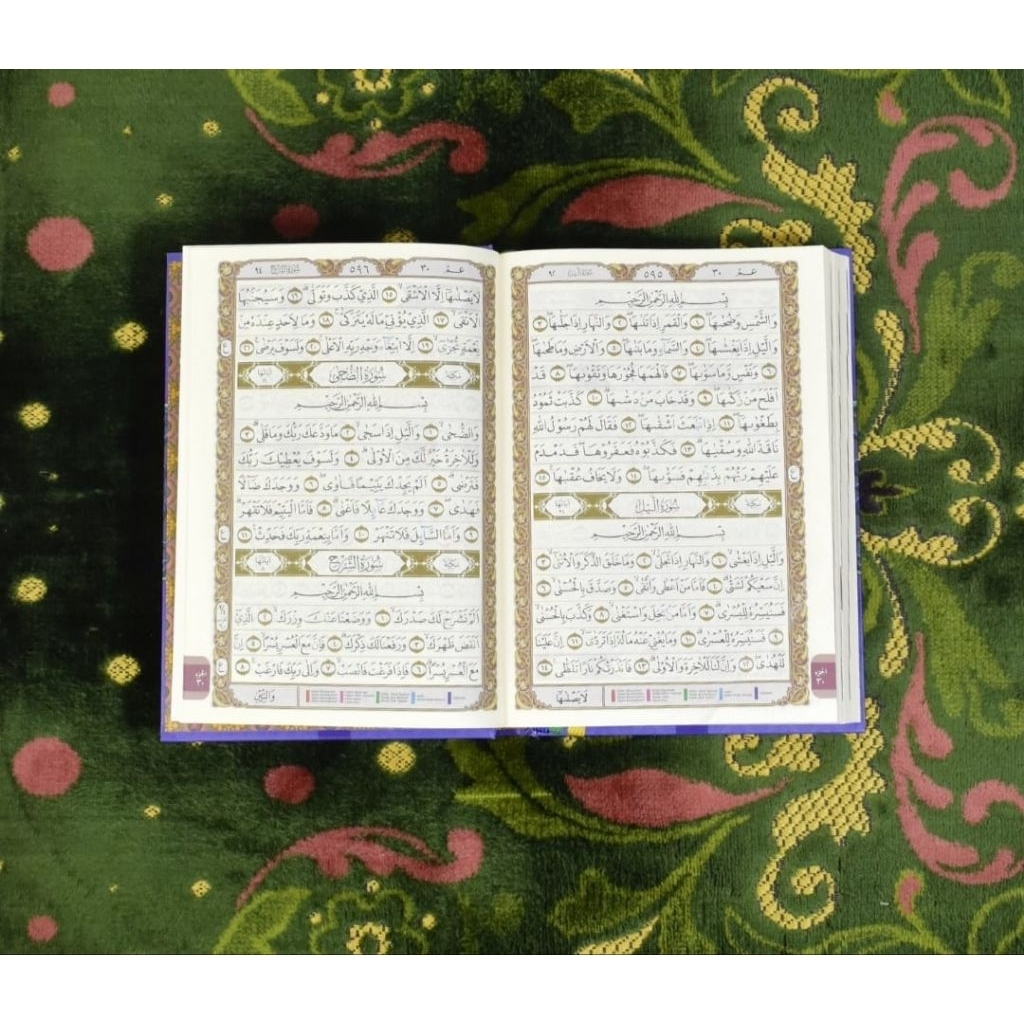 عم ٣٠ ٥٩٥
بِسْمِ اللّٰهِ الرَّحْمٰنِ الرَّحِيْمِ
وَالشَّمْسِ وَضُحٰىهَاۖ ١ وَالْقَمَرِ اِذَا تَلٰىهَاۖ ٢ وَالنَّهَارِ اِذَا جَلّٰىهَاۖ ٣
وَالَّيْلِ اِذَا يَغْشٰىهَاۖ ٤ وَالسَّمَاۤءِ وَمَا بَنٰىهَاۖ ٥ وَالْاَرْضِ وَمَا طَحٰىهَاۖ
٦ وَنَفْسٍ وَّمَا سَوّٰىهَاۖ ٧ فَاَلْهَمَهَا فُجُوْرَهَا وَتَقْوٰىهَاۖ ٨ قَدْ
اَفْلَحَ مَنْ زَكّٰىهَاۖ ٩ وَقَدْ خَابَ مَنْ دَسّٰىهَاۗ ١٠ كَذَّبَتْ ثَمُوْدُ
بِطَغْوٰىهَآۖ ١١ اِذِ انْۢبَعَثَ اَشْقٰىهَاۖ ١٢ فَقَالَ لَهُمْ رَسُوْلُ اللّٰهِ
نَاقَةَ اللّٰهِ وَسُقْيٰهَاۗ ١٣ فَكَذَّبُوْهُ فَعَقَرُوْهَاۖ فَدَمْدَمَ
عَلَيْهِمْ رَبُّهُمْ بِذَنْۢبِهِمْ فَسَوّٰىهَاۖ ١٤ وَلَا يَخَافُ عُقْبٰهَا ١٥
مكية سُوْرَةُ الَّيْلِ
بِسْمِ اللّٰهِ الرَّحْمٰنِ الرَّحِيْمِ
وَالَّيْلِ اِذَا يَغْشٰىۙ ١ وَالنَّهَارِ اِذَا تَجَلّٰىۙ ٢ وَمَا خَلَقَ الذَّكَرَ وَالْاُنْثٰىۙ ٣
اِنَّ سَعْيَكُمْ لَشَتّٰىۗ ٤ فَاَمَّا مَنْ اَعْطٰى وَاتَّقٰىۙ ٥ وَصَدَّقَ بِالْحُسْنٰىۙ ٦
فَسَنُيَسِّرُهٗ لِلْيُسْرٰىۗ ٧ وَاَمَّا مَنْۢ بَخِلَ وَاسْتَغْنٰىۙ ٨ وَكَذَّبَ بِالْحُسْنٰىۙ
٩ فَسَنُيَسِّرُهٗ لِلْعُسْرٰىۗ ١٠ وَمَا يُغْنِيْ عَنْهُ مَالُهٗٓ اِذَا تَرَدّٰىۙ ١١ اِنَّ عَلَيْنَا
لَلْهُدٰىۖ ١٢ وَاِنَّ لَنَا لَلْاٰخِرَةَ وَالْاُوْلٰىۗ ١٣ فَاَنْذَرْتُكُمْ نَارًا تَلَظّٰىۚ ١٤
لَا يَصْلٰىهَآ
الجزء
٣٠
عم ٣٠ ٥٩٦
لَا يَصْلٰىهَآ اِلَّا الْاَشْقَىۙ ١٥ الَّذِيْ كَذَّبَ وَتَوَلّٰىۗ ١٦ وَسَيُجَنَّبُهَا
الْاَتْقَىۙ ١٧ الَّذِيْ يُؤْتِيْ مَالَهٗ يَتَزَكّٰىۚ ١٨ وَمَا لِاَحَدٍ عِنْدَهٗ مِنْ
نِّعْمَةٍ تُجْزٰىۙ ١٩ اِلَّا ابْتِغَاۤءَ وَجْهِ رَبِّهِ الْاَعْلٰىۚ ٢٠ وَلَسَوْفَ يَرْضٰى ٢١
مكية سُوْرَةُ الضُّحٰى
بِسْمِ اللّٰهِ الرَّحْمٰنِ الرَّحِيْمِ
وَالضُّحٰىۙ ١ وَالَّيْلِ اِذَا سَجٰىۙ ٢ مَا وَدَّعَكَ رَبُّكَ وَمَا قَلٰىۗ ٣
وَلَلْاٰخِرَةُ خَيْرٌ لَّكَ مِنَ الْاُوْلٰىۗ ٤ وَلَسَوْفَ يُعْطِيْكَ رَبُّكَ
فَتَرْضٰىۗ ٥ اَلَمْ يَجِدْكَ يَتِيْمًا فَاٰوٰىۖ ٦ وَوَجَدَكَ ضَاۤلًّا
فَهَدٰىۖ ٧ وَوَجَدَكَ عَاۤىِٕلًا فَاَغْنٰىۗ ٨ فَاَمَّا الْيَتِيْمَ فَلَا تَقْهَرْۗ
٩ وَاَمَّا السَّاۤىِٕلَ فَلَا تَنْهَرْ ١٠ وَاَمَّا بِنِعْمَةِ رَبِّكَ فَحَدِّثْ ١١
مكية سُوْرَةُ الشَّرْحِ
بِسْمِ اللّٰهِ الرَّحْمٰنِ الرَّحِيْمِ
اَلَمْ نَشْرَحْ لَكَ صَدْرَكَۙ ١ وَوَضَعْنَا عَنْكَ وِزْرَكَۙ ٢ الَّذِيْٓ
اَنْقَضَ ظَهْرَكَۙ ٣ وَرَفَعْنَا لَكَ ذِكْرَكَۗ ٤ فَاِنَّ مَعَ الْعُسْرِ يُسْرًاۙ ٥ اِنَّ
مَعَ الْعُسْرِ يُسْرًاۗ ٦ فَاِذَا فَرَغْتَ فَانْصَبْۙ ٧ وَاِلٰى رَبِّكَ فَارْغَبْ ٨
وَالتِّيْنِ
الجزء
٣٠